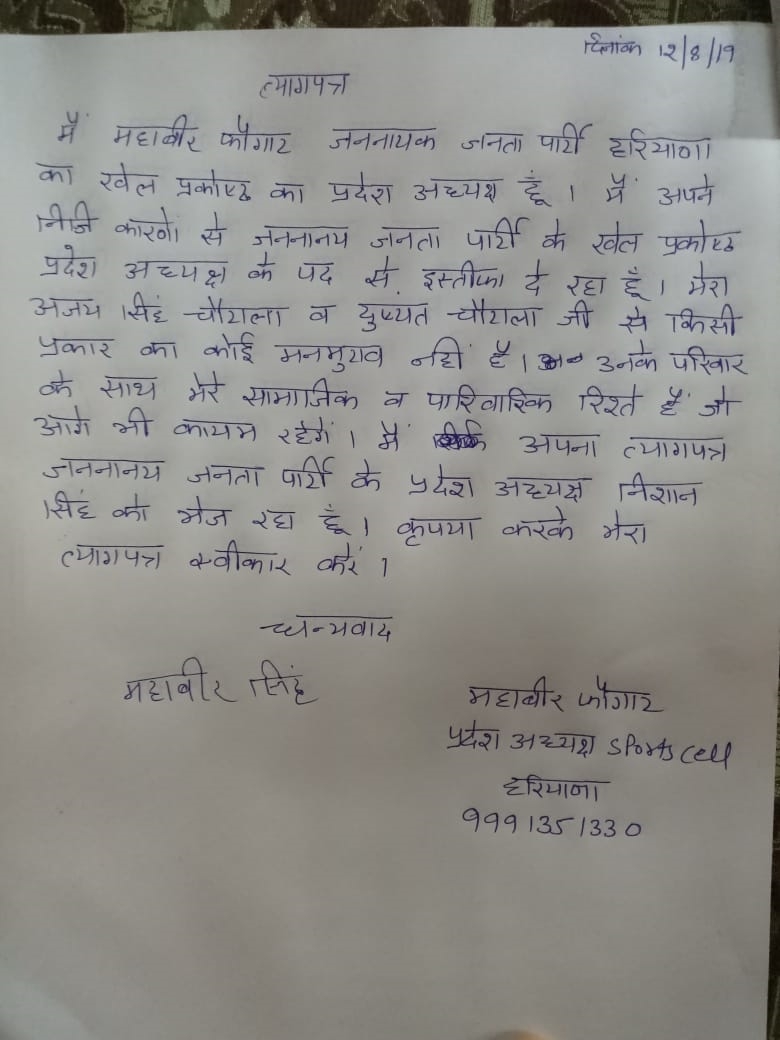 दिनांक 12/8/19
त्यागपत्र
मैं महाबीर फौगाट जननायक जनता पार्टी हरियाणा
का खेल प्रकोष्ठ का प्रदेश अध्यक्ष हूँ । मैं अपने
निजि कारणों से जननानय जनता पार्टी के खेल प्रकोष्ठ
प्रदेश अध्यक्ष के पद से इस्तीफा दे रहा हूँ । मेरा
अजय सिंह चौटाला व दुष्यत चौटाला जी से किसी
प्रकार का कोई मनमुटाव नहीं है । उनके परिवार
के साथ मेरे सामाजिक व पारिवारिक रिश्ते हैं जो
आगे भी कायम रहेगें । मैं अपना त्यागपत्र
जननानय जनता पार्टी के प्रदेश अध्यक्ष निशान
सिंह को भेज रहा हूँ । कृपया करके मेरा
त्यागपत्र स्वीकार करें ।
धन्यवाद
महाबीर सिंह
महाबीर फौगाट
प्रदेश अध्यक्ष Sports cell
हरियाणा
9991351330